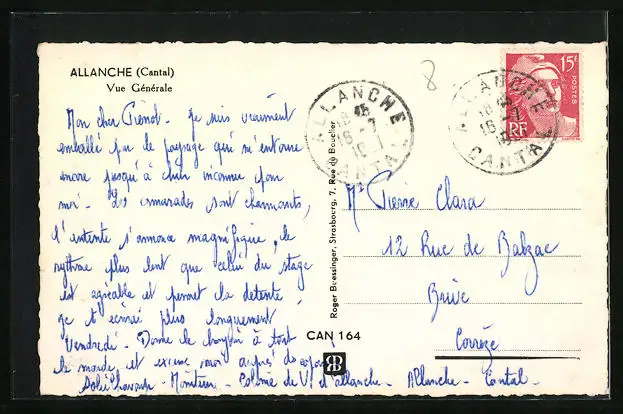 ALLANCHE (Cantal)
Vue Générale
8
ALLANCHE
18 45
16 - 7
CANTAL
ALLANCHE
16 - 7
CANTAL
15F
POSTES
RF
Mon cher Pierrot - Je suis vraiment
emballé par le paysage qui m'entoure
encore jusqu'à inconnu pour
moi - Les camarades sont charmants,
l'entente s'annonce magnifique, le
rythme plus lent que celui du stage
est agréable et permet la détente
Je t'écrirai plus longuement
Vendredi - Donne le bonjour à tout
le monde et excuse moi auprès des
Moniteur - Colonie de V. d'Allanche - Allanche - Cantal -
Roger Buessinger, Strasbourg, 7, Rue du Bouclier
CAN 164
Mr Pierre Clara
12 Rue de Balzac
Brive
Corrèze